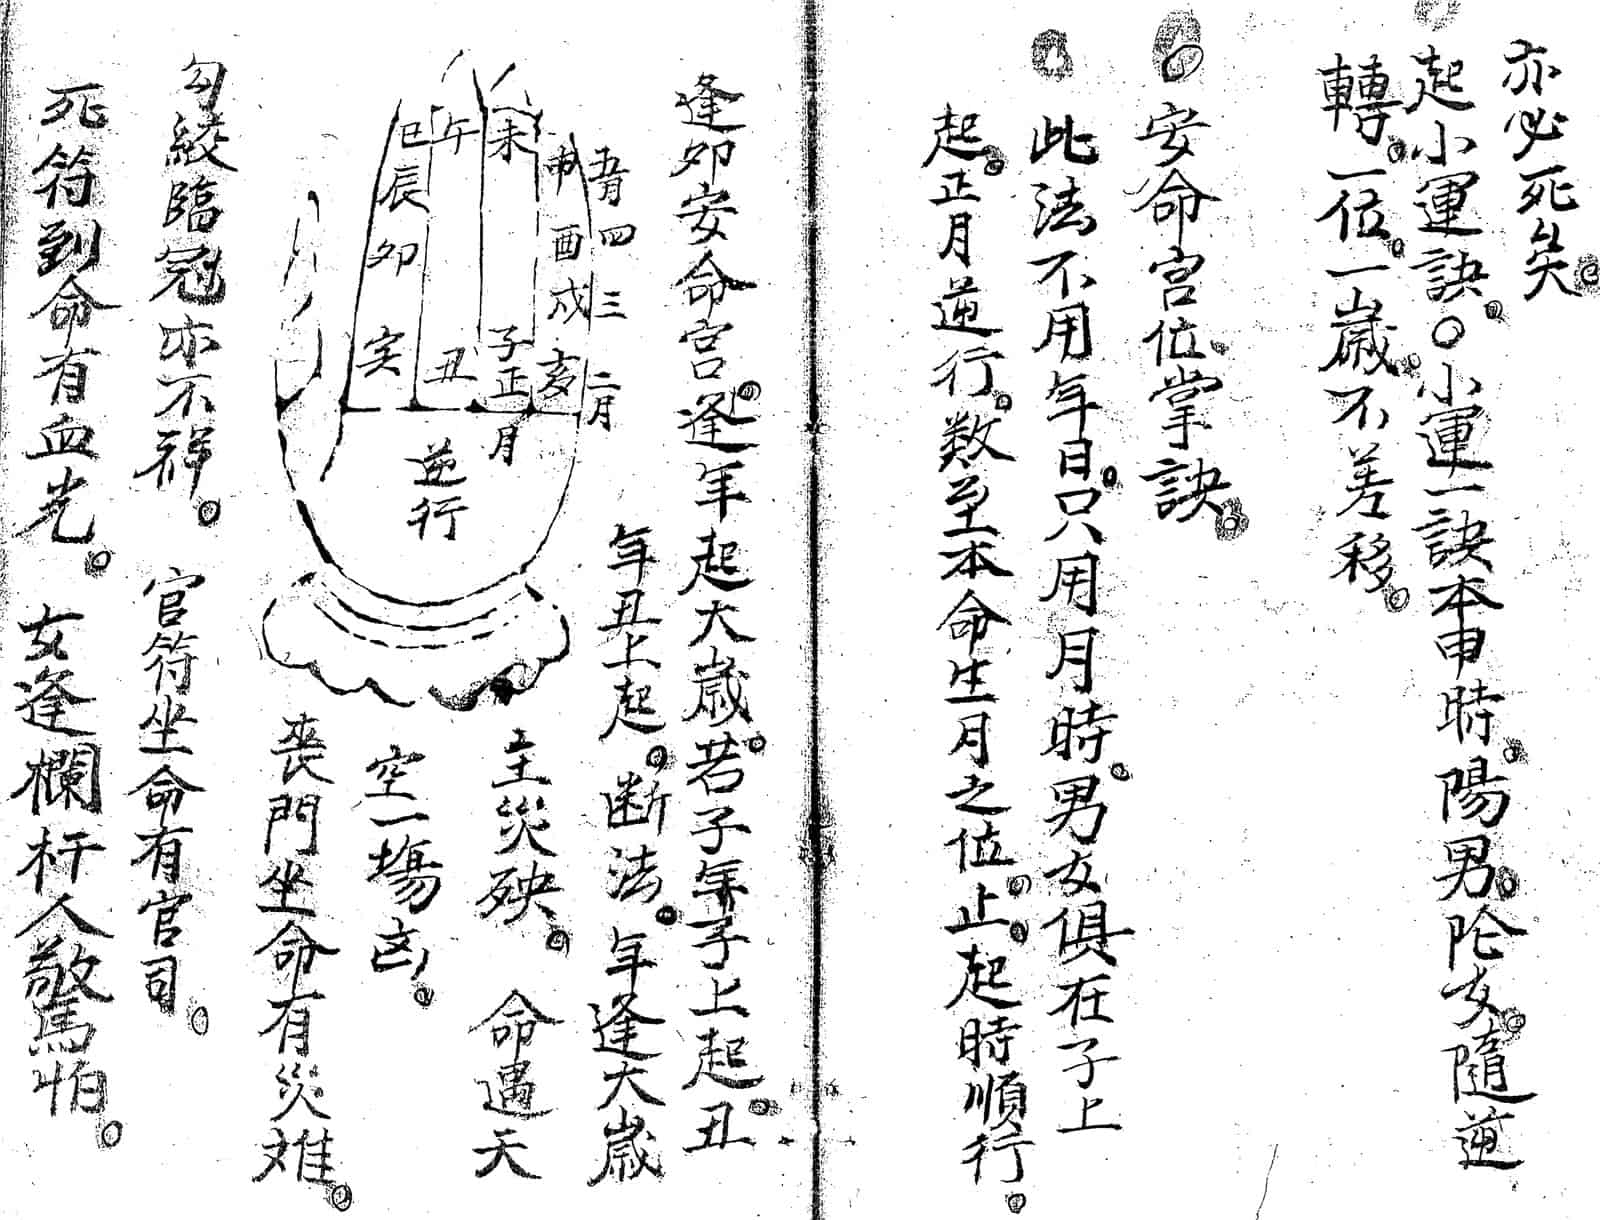 亦必死矣。
起小運訣。〇小運一訣本申時。陽男。陰女。隨逆
轉。一位。一歲。不差移。
安命宮位掌訣。
此法不用年日。只用月時。男女俱在子上
起。正月逆行。数至本命生月之位。止。起時順行。
逢卯安命宮。逢年起大歲。若子年子上起。丑
年丑上起。断法。年逢大歲
主災殃。命遇天
空一場凶。
五月 四 三 二月
申 酉 戌 亥
未 子 正月
午 丑
巳 辰 卯 寅
逆行
喪門坐命有災难。
勾絞臨冠亦不祥。官符坐命有官司。
死符到命有血光。女逢欄杆人驚怕。